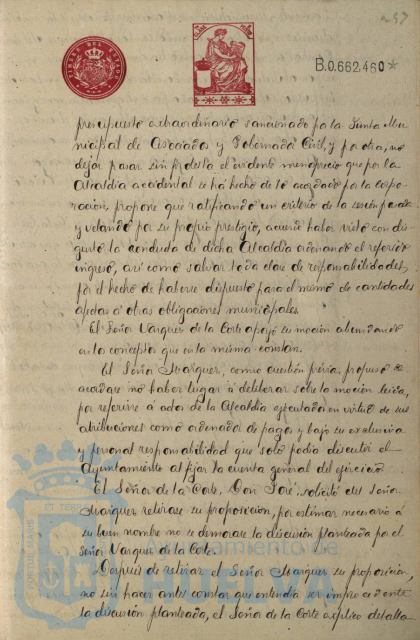 257
TIMBRE DEL ESTADO
B.0.662.460*
presupuesto extraordinario sancionado por la Junta Mu-
nicipal de Asociados y Gobernador Civil, y por otra, no
dejar pasar sin protesta el evidente menosprecio que por la
Alcaldia accidental se há hecho de lo acordado por la corpo-
racion, propone que ratificando un criterio de la sesion pasada
y velando por su propio prestigio, acuerde haber visto con dis-
gusto la conducta de dicha Alcaldia ordenando el referido
ingreso, así como salvar toda clase de responsabilidades,
por el hecho de haberse dispuesto para el mismo de cantidades
afectas á otras obligaciones municipales.
El Señor Vazquez de la Corte apoyó su mocion abundando
en los conceptos que en la misma constan.
El Señor Marquez, como cuestion prévia, propuso se
acordase no haber lugar á deliberar sobre la mocion leida,
por referirse á actos de la Alcaldia ejecutados en virtud de sus
atribuciones como ordenador de pagos y bajo su exclusiva
y personal responsabilidad que solo podia discutir el
Ayuntamiento al fijar la cuenta general del ejercicio.
El Señor de la Corte, Don José, solicitó del Señor
Marquez retirase su proposicion, por estimar necesario á
su buen nombre no se demorase la discusion planteada por el
Señor Vazquez de la Corte.
Despues de retirar el Señor Marquez su proposicion,
no sin hacer antes constar que entendia ser improcedente
la discusion planteada, el Señor de la Corte explicó detalla-
Ayuntamiento de
HUELVA